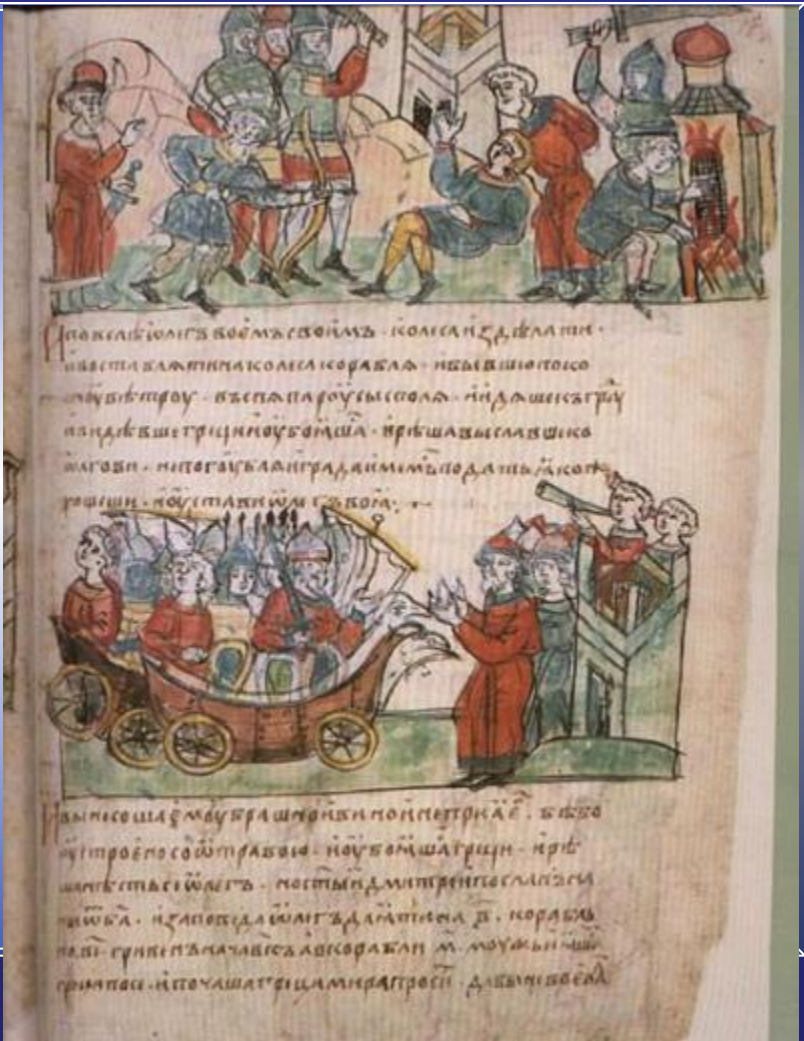 И повелѣ ѡлегъ воемъ своимъ · колеса издѣлати ·
и воставляти на колеса корабля · и бывшю поко
сноу вѣтроу · въспѧ пароусы с поля · и идяше къ граⷣу
и видѣвше грѣци и оубоӕшаⷭ · и рѣша выславше ко
ѡлгови · не погоублѧи града имемъ подать ӕкоⷤ
хощеши · и оустави ѡлегъ воӕ :·
И вынесоша емоу брашно и вино и не приӕ еⷢ · бѣ бо
оустроено со ѿравою · и оубоӕшаⷭ грѣци · и рѣ
ша нѣсть се ѡлегъ · но ст҃ыи дмитреи посланъ на
ны ѿ б҃а · и заповѣда ѡлегъ даӕти на в҃ · корабль
по в҃і · гривенъ на а въ корабли м҃ · моужь и ӕшаⷭ
грѣци по се · и почаша грѣци мира проси · дабы не воеваⷧ